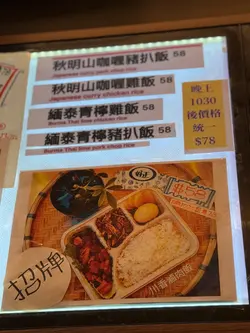 秋明山咖喱豬扒飯 58
Japanese curry pork chop rice
秋明山咖喱雞飯 58
Japanese curry chicken rice
緬泰青檸雞飯 58
Burma-Thai lime chicken rice
緬泰青檸豬扒飯 58
Burma-Thai lime pork chop rice
晚上
1030
後價格
統一
$78
招牌